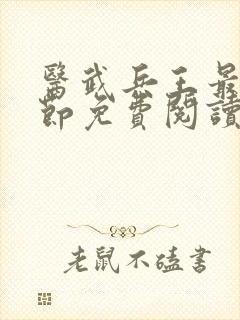 醫武兵王最
節免費閱讀
老鼠不磕書